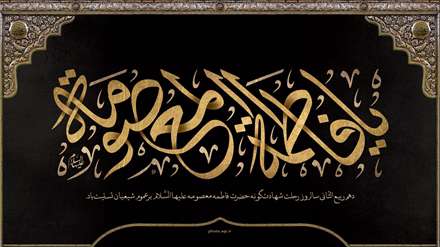 یا فاطمة المعصومة
علیهاالسلام
دهم ربیع الثانی سالروز رحلت شهادت‌گونه حضرت فاطمه معصومه علیها السّلام بر عموم شیعیان تسلیت باد.